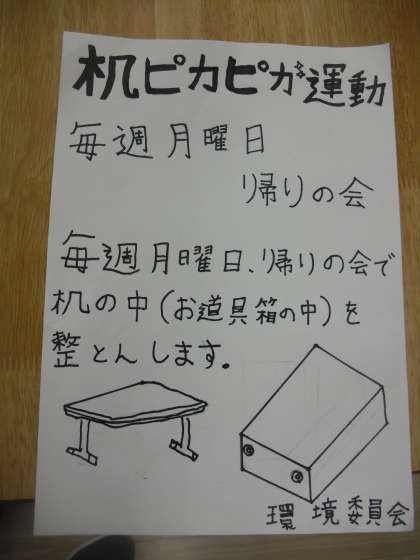 机ピカピカ運動
毎週月曜日
帰りの会
毎週月曜日、帰りの会で
机の中(お道具箱の中)を
整とんします。
環境委員会